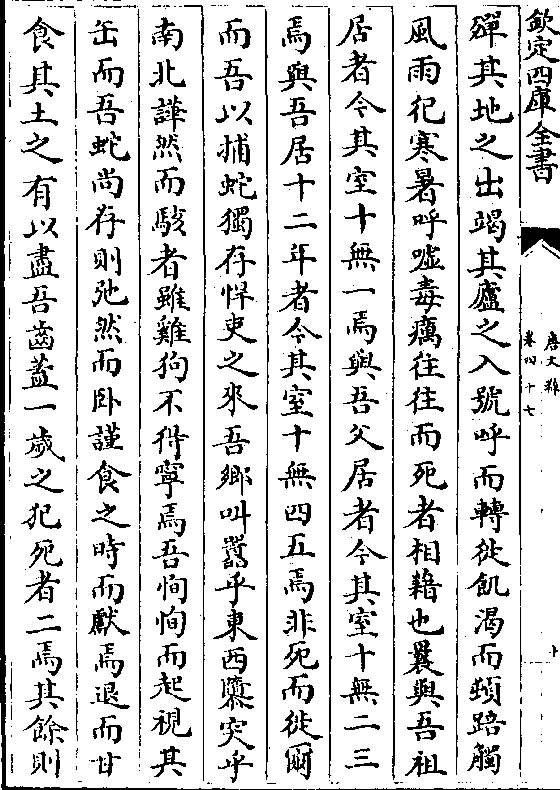 欽定四庫全書
唐文粹
卷四十七
殫其地之出竭其廬之入號呼而轉徙飢渴而頓踣觸
風雨犯寒暑呼噓毒癘往往而死者相藉也曩與吾祖
居者今其室十無一焉與吾父居者今其室十無二三
焉與吾居十二年者今其室十無四五焉非死而徙爾
而吾以捕蛇獨存悍吏之來吾鄉叫囂乎東西隳突乎
南北譁然而駭者雖雞狗不得寧焉吾恂恂而起視其
缶而吾蛇尚存則弛然而卧謹食之時而獻焉退而甘
食其土之有以盡吾齒葢一歲之犯死者二焉其餘則